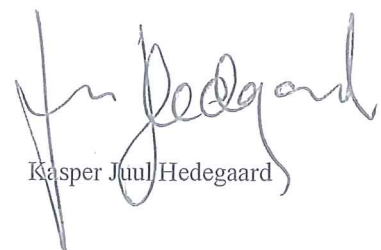 Hedegaard
Kasper Juul Hedegaard